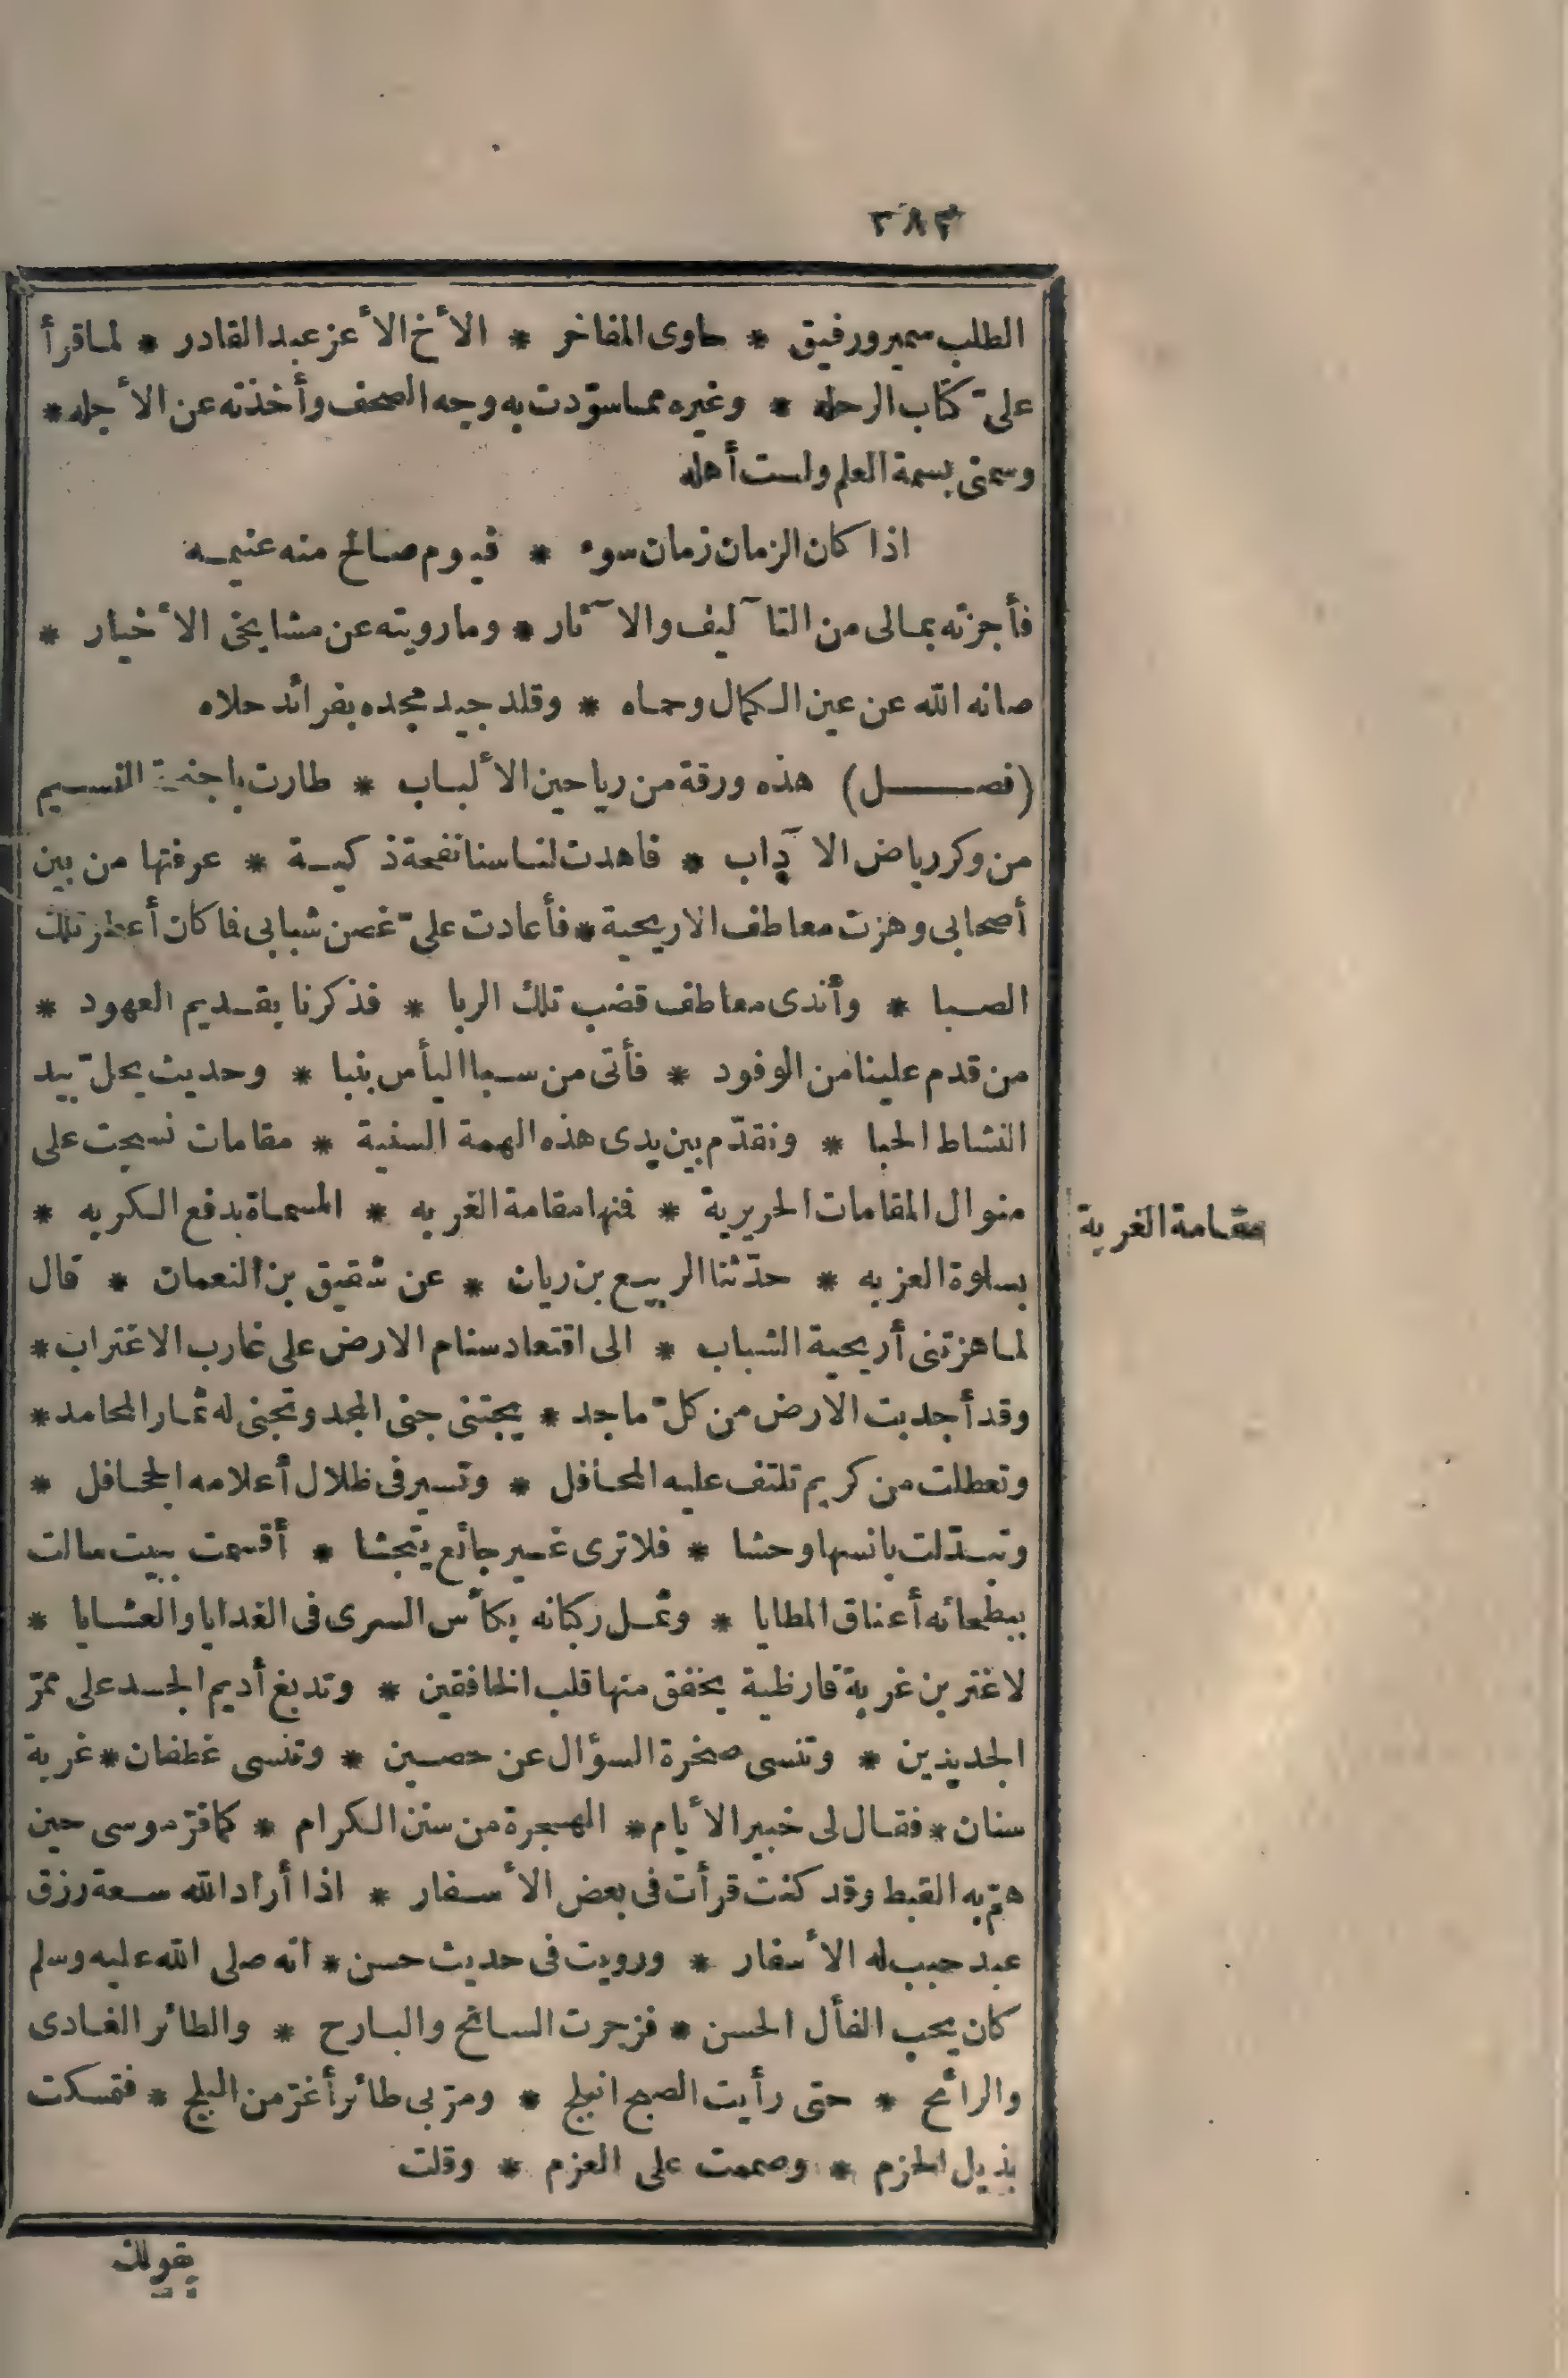 ٣٨٣
الطلب سمير ورفيق * حاوى المفاخر * الأخ الأعز عبد القادر * لما قرأ
علىّ كتاب الرحله * وغيره مما سوّدت به وجه الصحف وأخذته عن الأجله *
وسمنى بسمة العلم ولست أهله
اذا كان الزمان زمان سوء * فيوم صالح منه غنيمه
فأجزته بمالى من التآليف والآثار * وما رويته عن مشايخى الأخيار *
صانه الله عن عين الكمال وحماه * وقلد جيد مجده بفرائد حلاه
(فصل) هذه ورقة من رياحين الألباب * طارت باجنحة النسيم
من وكر رياض الآداب * فاهدت لنا سنا نفحة ذكية * عرفتها من بين
أصحابى وهزت معاطف الاريحية * فأعادت علىّ غصن شبابى فما كان أعطر تلك
الصبا * وأندى معاطف قضب تلك الربا * فذكرنا بقديم العهود *
من قدم علينا من الوفود * فأتى من سبا اليأس بنبا * وحديث يحلّ بيد
النشاط الحبا * ونقدّم بين يدى هذه الهمة السنية * مقامات نسجت على
منوال المقامات الحريرية * فمنها مقامة الغربه * المسماة بدفع الكربه *
مقامة الغربة
بسلوة العزبه * حدّثنا الربيع بن ريان * عن شقيق بن النعمان * قال
لما هزتنى أريحية الشباب * الى اقتعاد سنام الارض على غارب الاغتراب *
وقد أجدبت الارض من كلّ ماجد * يجتنى جنى المجد وتجنى له ثمار المحامد *
وتعطلت من كريم تلتف عليه المحافل * وتسير فى ظلال أعلامه الجحافل *
وتبدّلت بانسها وحشا * فلا ترى غير جائع يتجشا * أقسمت ببيت سالت
ببطحائه أعناق المطايا * وثمل ركبانه بكأس السرى فى الغدايا والعشايا *
لاغتربن غربة قارظية يخفق منها قلب الخافقين * وتدبغ أديم الجسد على ممرّ
الجديدين * وتنسى صخرة السؤال عن حصين * وتنسى غطفان * غربة
سنان * فقال لى خبير الأيام * الهجرة من سنن الكرام * كما فرّ موسى حين
همّ به القبط وقد كنت قرأت فى بعض الأسفار * اذا أراد الله سعة رزق
عبد حبب له الأسفار * ورويت فى حديث حسن * انه صلى الله عليه وسلم
كان يحب الفأل الحسن * فزجرت السانح والبارح * والطائر الغادى
والرائح * حتى رأيت الصبح انبلج * ومرّ بى طائر أغرّ من البلج * فتمسكت
بذيل الحزم * وصممت على العزم * وقلت
يقولك